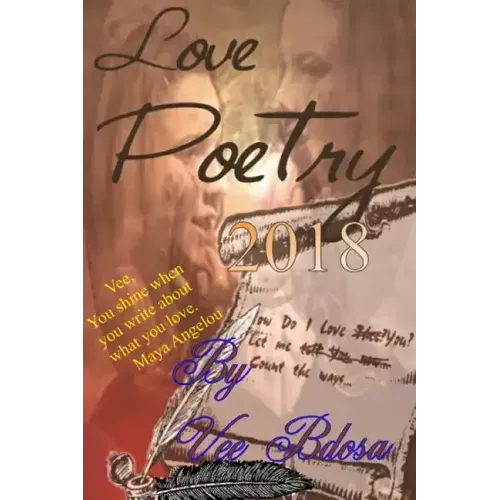 Love
Poetry
2018
Vee,
You shine when
you write about
what you love.
Maya Angelou
How Do I Love Thee? You?
Let me tell you now...
Count the ways...
By
Vee Bdosa